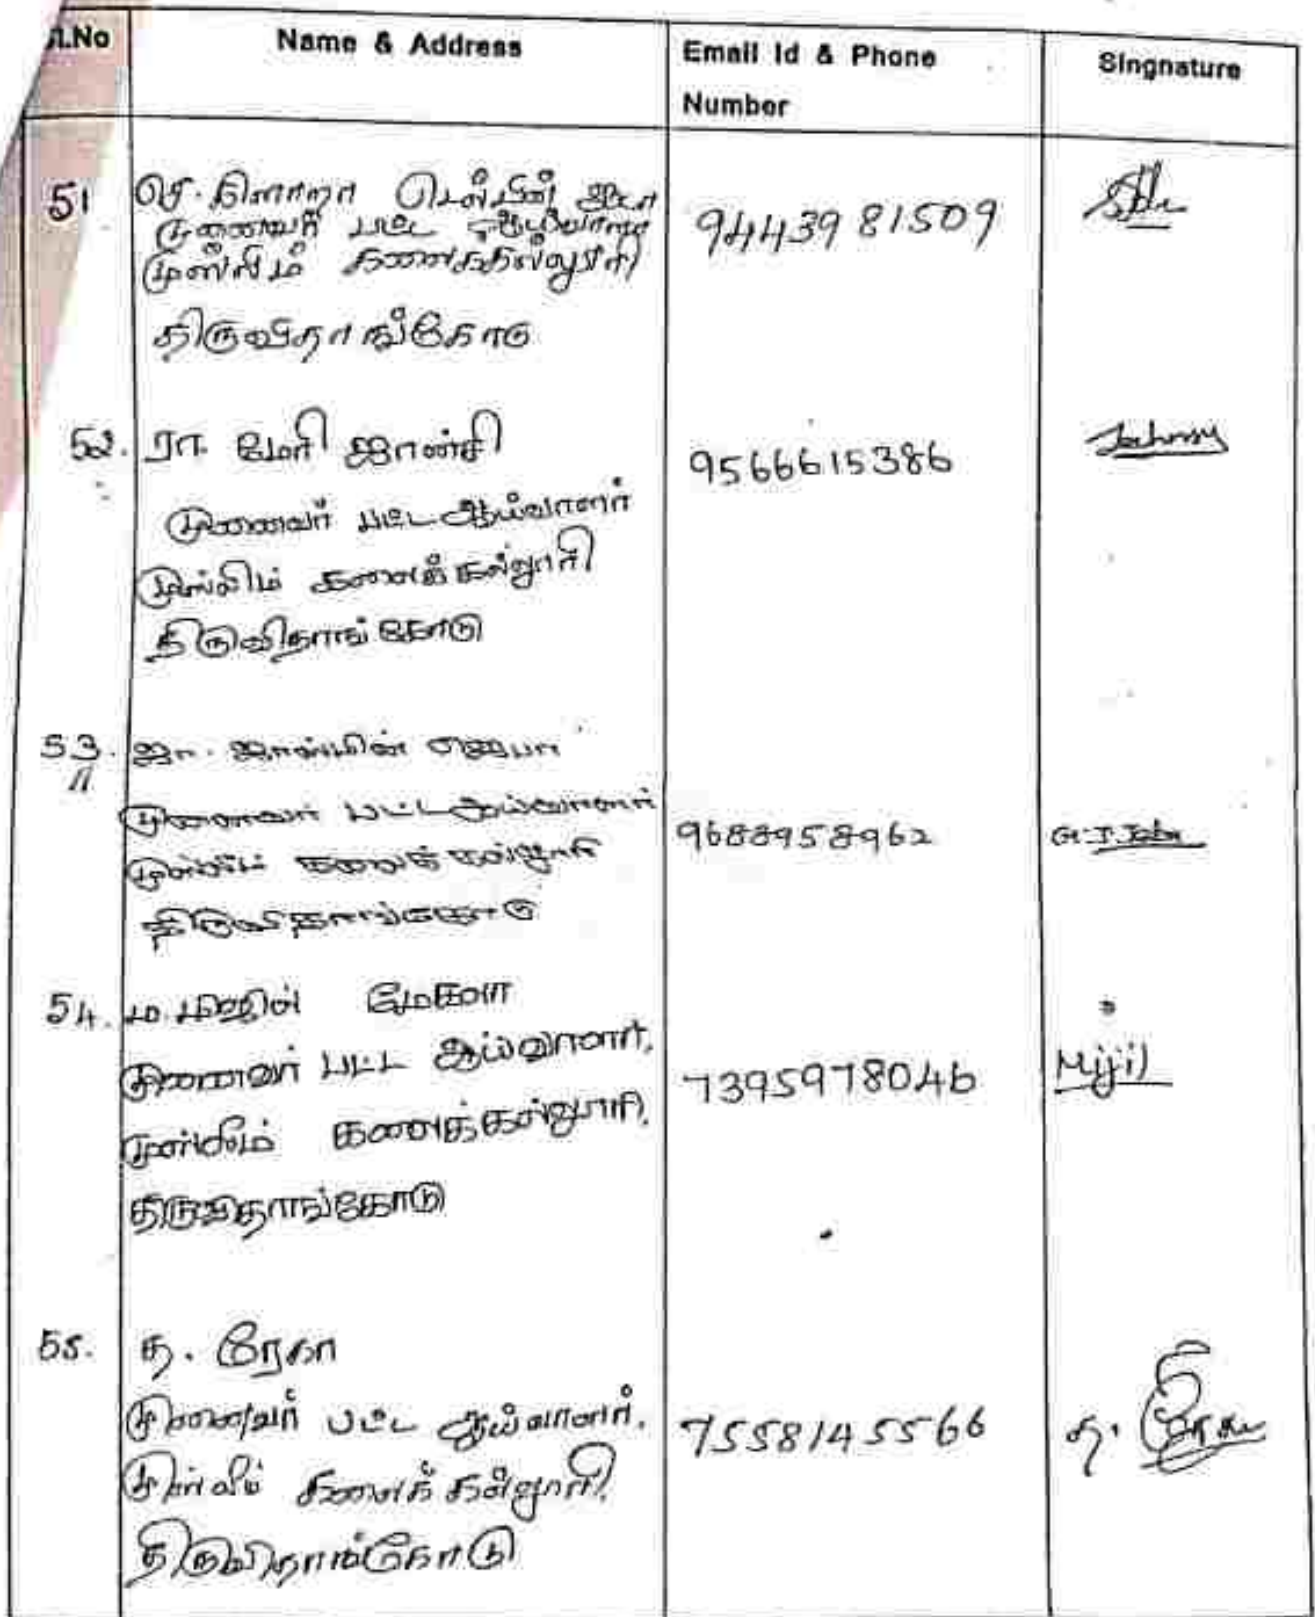 Sl.No Name & Address Email Id & Phone Number Singnature
51
முனைவர் பட்ட ஆய்வாளர்
முஸ்லிம் கலைக்கல்லூரி
திருவிதாங்கோடு
9443981509
52. ரா. மேரி ஜான்சி
முனைவர் பட்ட ஆய்வாளர்
முஸ்லிம் கலைக்கல்லூரி
திருவிதாங்கோடு
9566615386
53. ஜா. ஜாஸ்மின் ஜெபா
முனைவர் பட்ட ஆய்வாளர்
முஸ்லிம் கலைக் கல்லூரி
திருவிதாங்கோடு
9688958962
54. ம. மிஜில் மேகலா
முனைவர் பட்ட ஆய்வாளர்,
முஸ்லீம் கலைக்கல்லூரி,
திருவிதாங்கோடு
7395978046
Mijjil
55. த. ரேகா
முனைவர் பட்ட ஆய்வாளர்,
முஸ்லீம் கலைக் கல்லூரி,
திருவிதாங்கோடு
7558145566
த. ரேகா